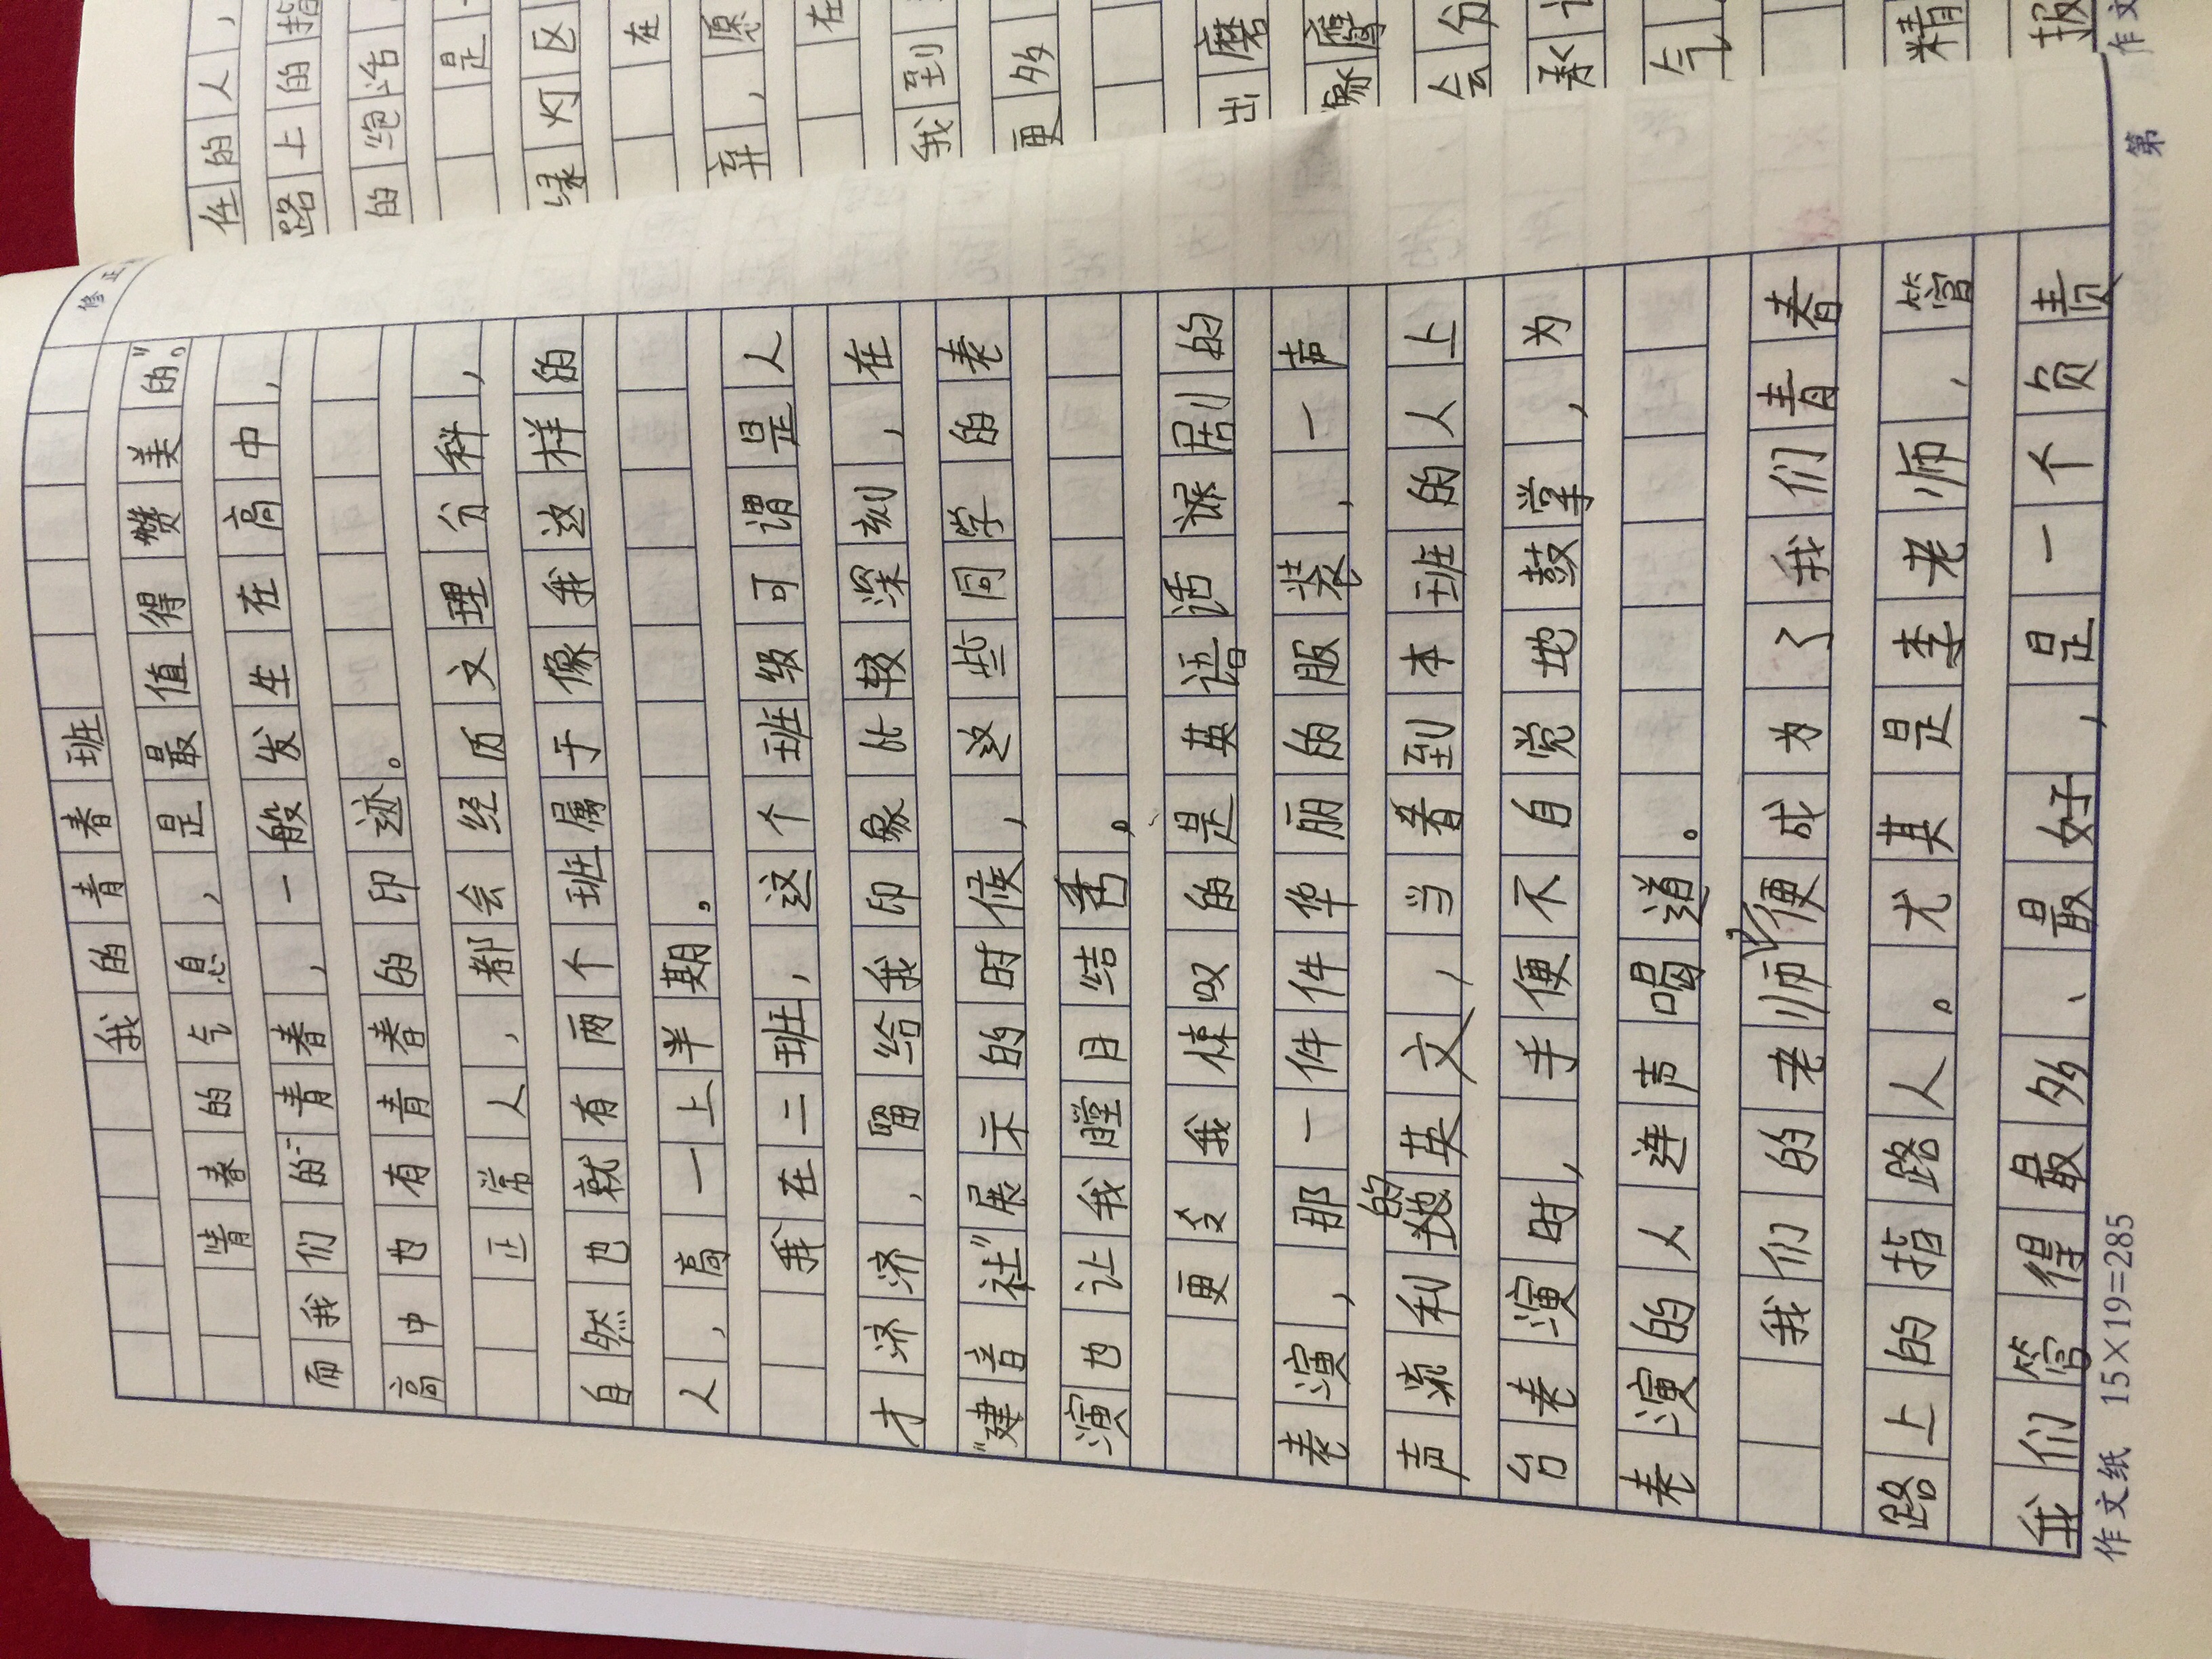 我的青春班
青春的气息，是最值得赞美的"。
而我们的"青春，一般发生在高中，
高中也有青春的印迹。
正常人，都会经历文理分科，
自然也就有两个班属于像我这样的
人，高一上半期。
我在二班，这个班级可谓是人
才济济，留给我印象比较深刻，在
"建音社"展示的时候，这些同学的表
演也让我瞠目结舌。
更令我惊叹的是英语话剧的
表演，那一件件华丽的服装，一声
声流利的英文，当看到本班的人上
台表演时，手便不自觉地鼓掌，为
表演的人连声喝道。
我们的老师便成为了我们青春
路上的指路人。尤其是李老师，管
我们管得最多、最好，是一个负责
修正
作文纸 15×19=285
第
任的人，
路上的指
的绝活
是
绿灯区
在
弃，愿
在
我到
更多
出磨
象鹰
会分
承认
气
精
报
作文